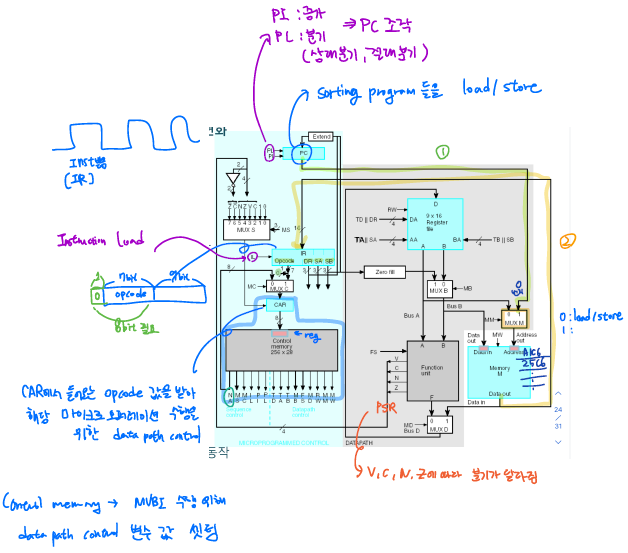 PI : 증가
PL : 분기
⇒ PC 조작
(상대분기, 절대분기)
Sorting program 등을 load/store
Inst뽑
(IR)
Extend
PL
PI
PC
①
②
V C N Z
7 6 5 4 3 2 1 0
MUX S
MS
RW
TD || DR
DA
D
9 x 16
Register
file
TA || SA
AA
BA
TB || SB
A
B
Instruction Load
IR
Opcode
DR SA SB
7bit
9bit
0
opcode
8bit 필요
Zero fill
MC
0 1
MUX C
1 0
MUX B
MB
CAR
8
reg
Control
memory
256 x 28
Bus A
Bus B
MM
0 1
MUX M
0 : load/store
1 :
Data
out
MW
Address
out
Data in
Address
A1C6
25C6
Memory
M
Data out
Data in
FS
V
C
N
Z
A
B
Function
unit
F
PSR
MD
Bus D
0 1
MUX D
CAR에서 들어온 opcode 값을 받아
해당 마이크로 오퍼레이션 수행을
위한 data path control
4
MICROPROGRAMMED CONTROL
DATAPATH
24
31
동작
V, C, N, Z에 따라 분기가 달라짐
Control memory → MVBI 수행 위해
data path control 변수 값 셋팅